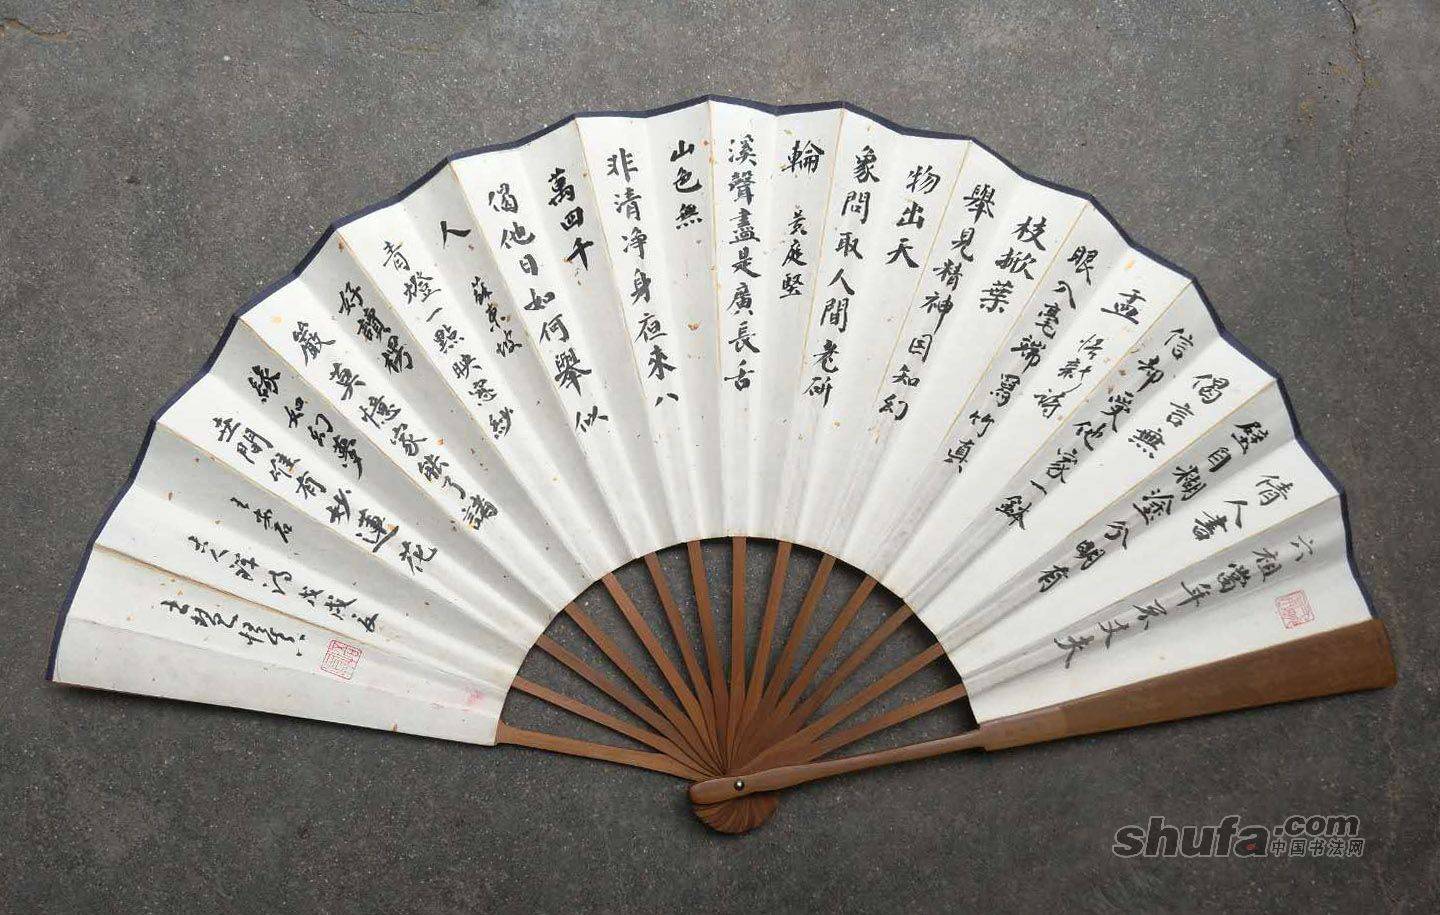 六祖當年不丈夫
倩人書
壁自糊塗分明有
偈言無
信却受他家一鉢
盂 悟新诗
眼入毫端寫竹真
枝掀葉
舉見精神因知幻
物出天
象問取人間老斫
輪 黄庭堅
溪聲盡是廣長舌
山色無
非清净身夜來八
萬四千
偈他日如何舉似
人 蘇東坡
青燈一點映窓紗
好讀楞
嚴莫憶家能了諸
緣如幻夢
世間唯有妙蓮花
王安石
古人禅诗戊戌夏
shufa.com
中国书法网